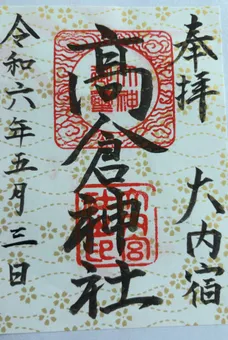 奉拝
大内宿
高倉神社
令和六年五月三日